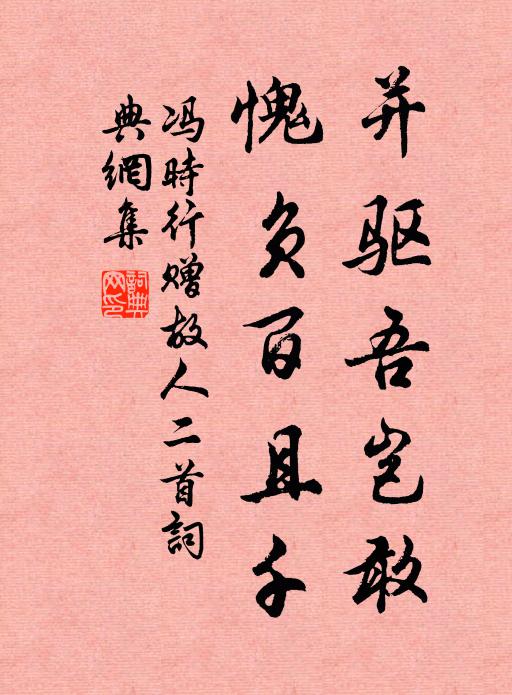 并驱吾岂敢
愧负百且千
冯時行赠故人二首詞
典網集
詞典
网印